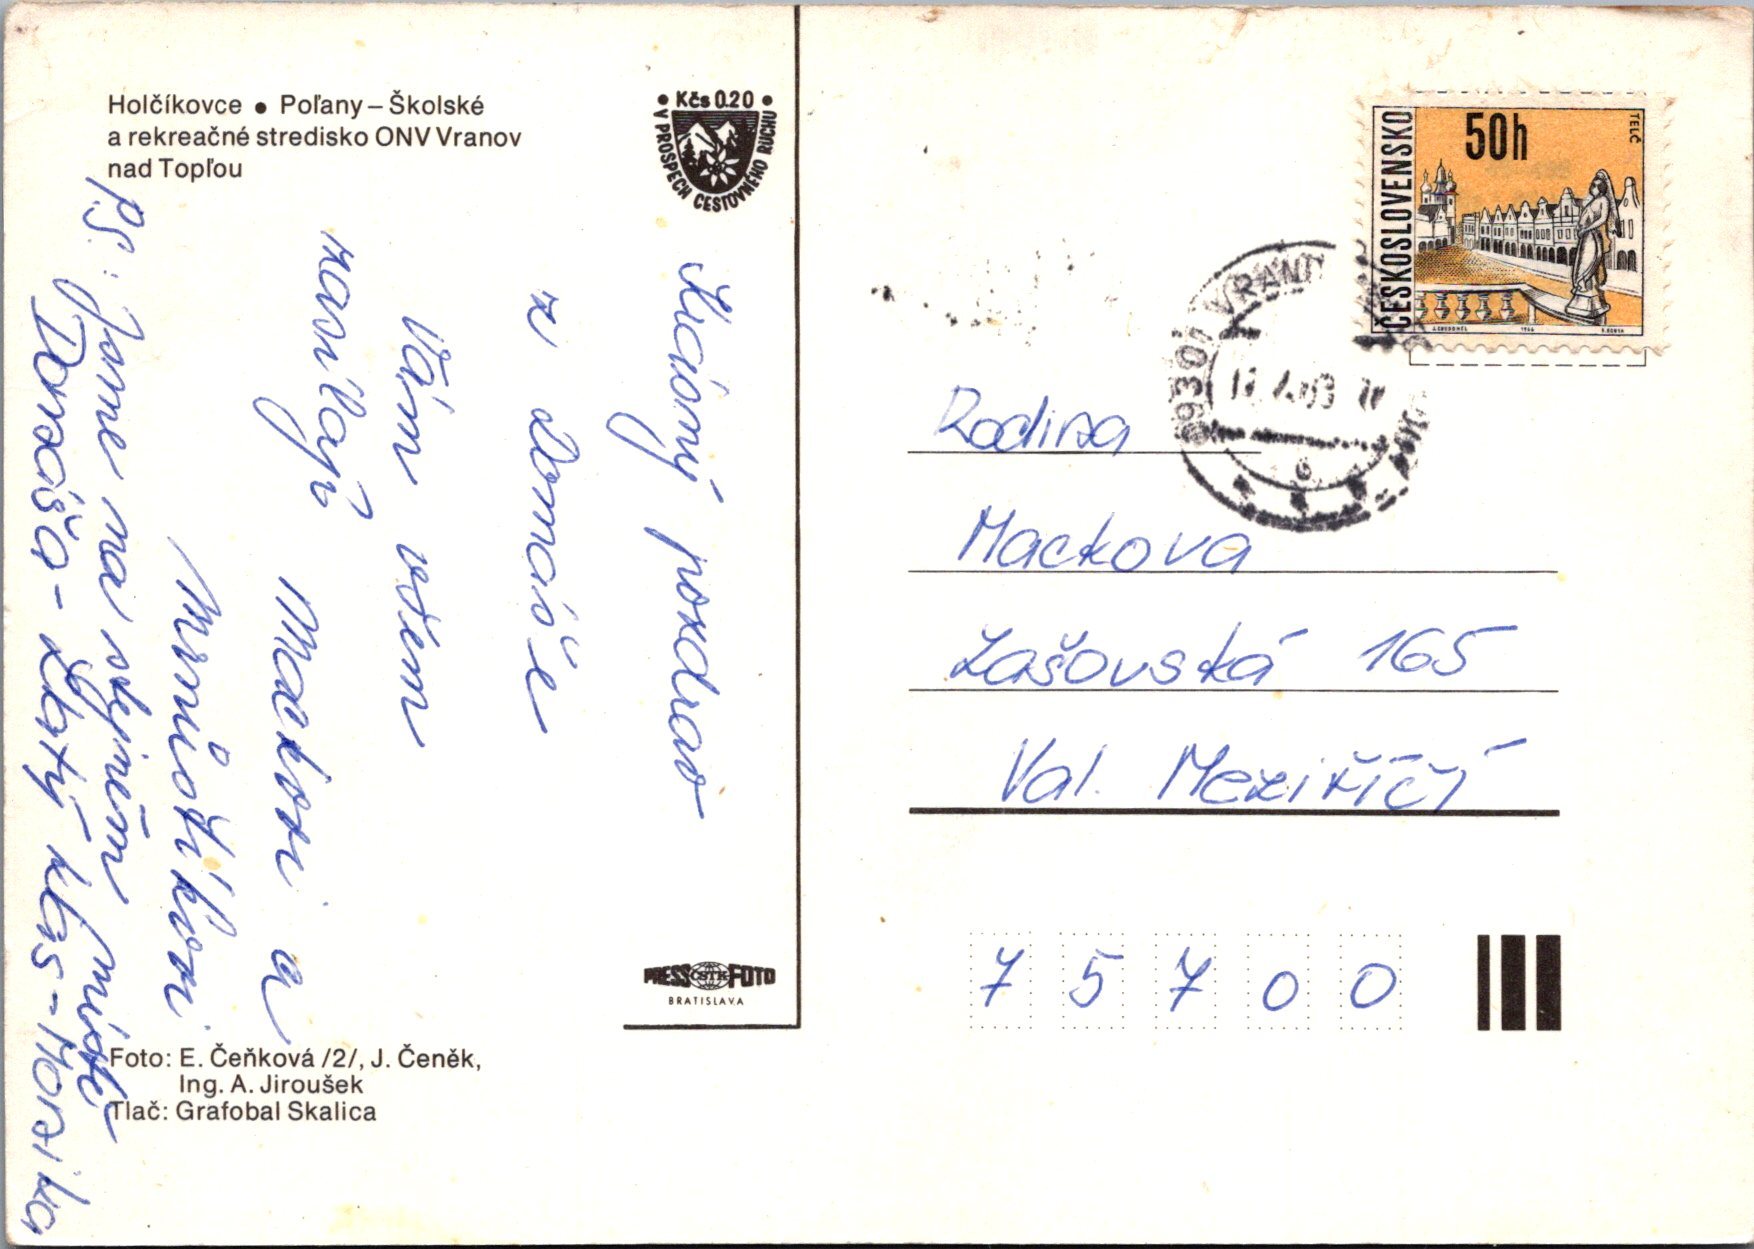 Holčíkovce • Poľany – Školské
a rekreačné stredisko ONV Vranov
nad Topľou
• Kčs 0.20 •
V PROSPECH CESTOVNÉHO RUCHU
Srdečný pozdrav
z Domaše
Vám všem
zasílají
Mackovi a
PS: Jsme na stejném místě
Domaša - Zlatý klas -
PRESS ČSTK FOTO
BRATISLAVA
Foto: E. Čeňková /2/, J. Čeněk,
Ing. A. Jiroušek
Tlač: Grafobal Skalica
ČESKOSLOVENSKO
50h
TELČ
1966
09301 VRANOV
Rodina
Mackova
Zašovská 165
Val. Meziříčí
75700